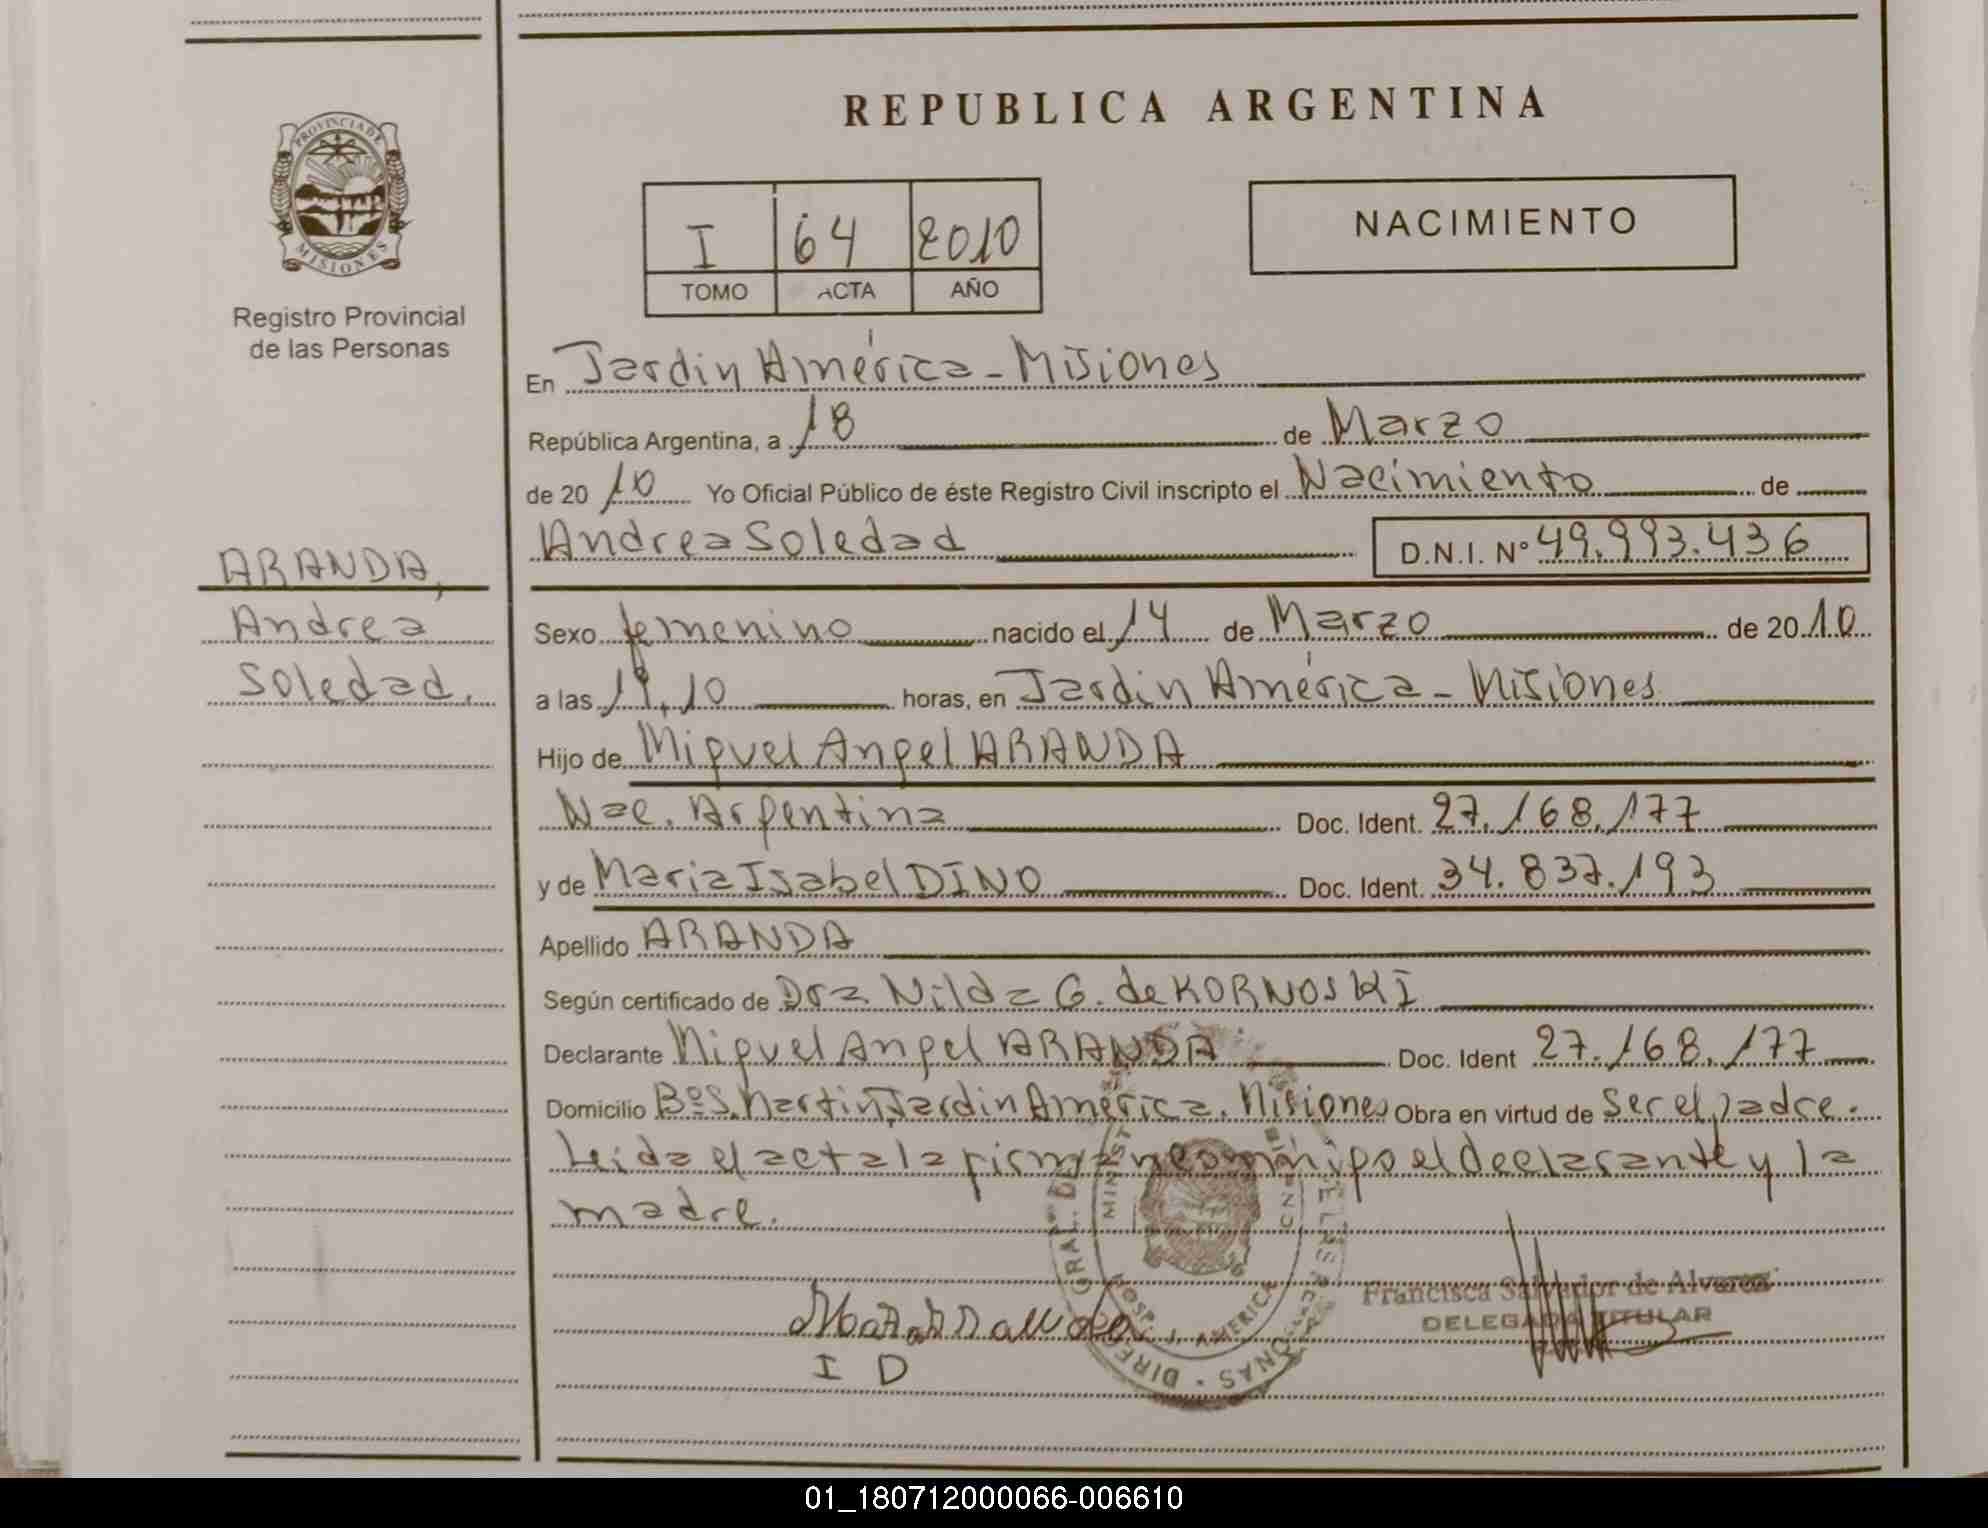 REPUBLICA ARGENTINA
PROVINCIA DE
MISIONES
Registro Provincial
de las Personas
I 64 2010
TOMO ACTA AÑO
NACIMIENTO
En Jardin América - Misiones
República Argentina, a 18 de Marzo
de 2010 Yo Oficial Público de éste Registro Civil inscripto el Nacimiento de
Andrea Soledad D.N.I. Nº 49.993.436
ARANDA,
Andrea
Soledad.
Sexo femenino nacido el 14 de Marzo de 2010
a las 19,10 horas, en Jardin América - Misiones
Hijo de Miguel Angel ARANDA
Nac. Argentina Doc. Ident. 27.168.177
y de Maria Isabel DINO Doc. Ident. 34.837.193
Apellido ARANDA
Según certificado de Dra Nilda G. de KORNOSKI
Declarante Miguel Angel ARANDA Doc. Ident 27.168.177
Domicilio Bº S. Martin, Jardin América. Misiones Obra en virtud de Ser el padre.
Leida el acta la firman conmigo el declarante y la
madre.
Francisca Salvador de Alvarez
DELEGADA TITULAR
HOSP. J. AMERICA
I D
01_180712000066-006610